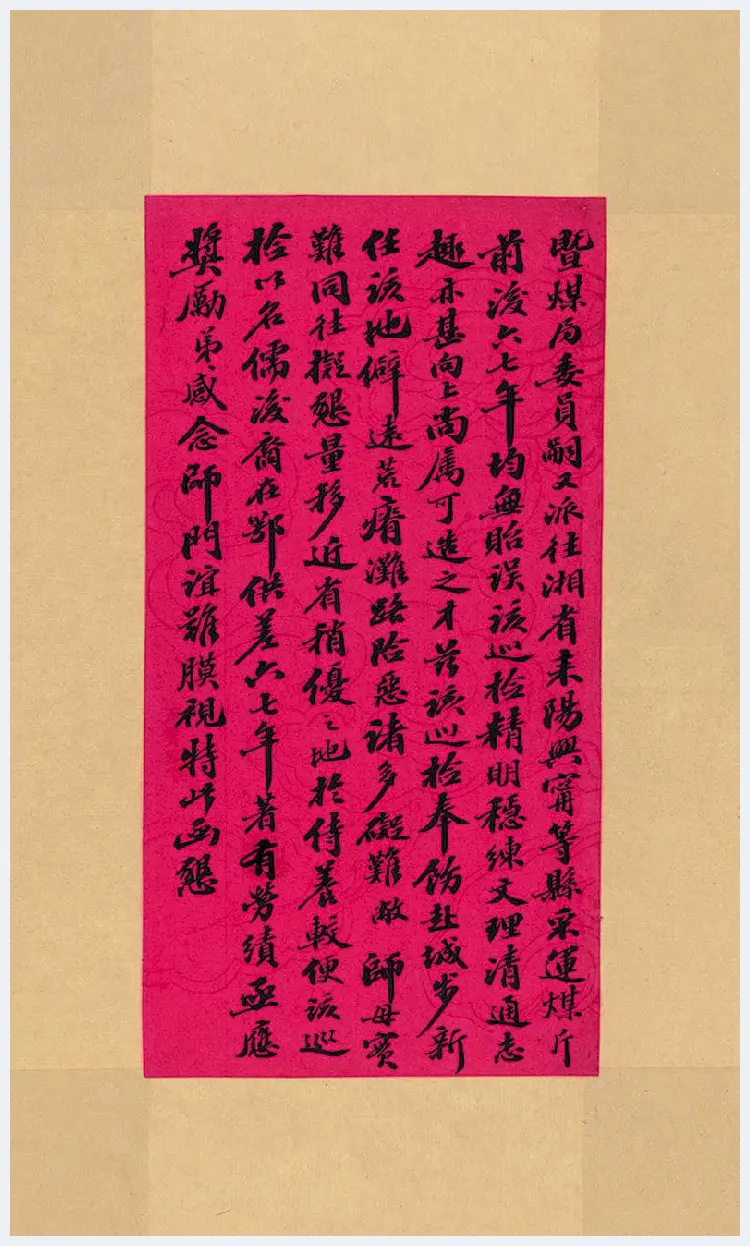 暨煤局委員嗣又派往湘省耒陽興甯等縣采運煤斤
前後六七年均無貽誤該巡檢精明穩練文理清通志
趣亦甚向上尚屬可造之才茲該巡檢奉飭赴城步新
任該地僻遠荒瘠灘路險惡諸多礙難敝師母實
難同往擬懇量移近省稍優之地於侍養較便該巡
檢以名儒後裔在鄂供差六七年著有勞績亟應
獎勵弟感念師門誼難膜視特此函懇